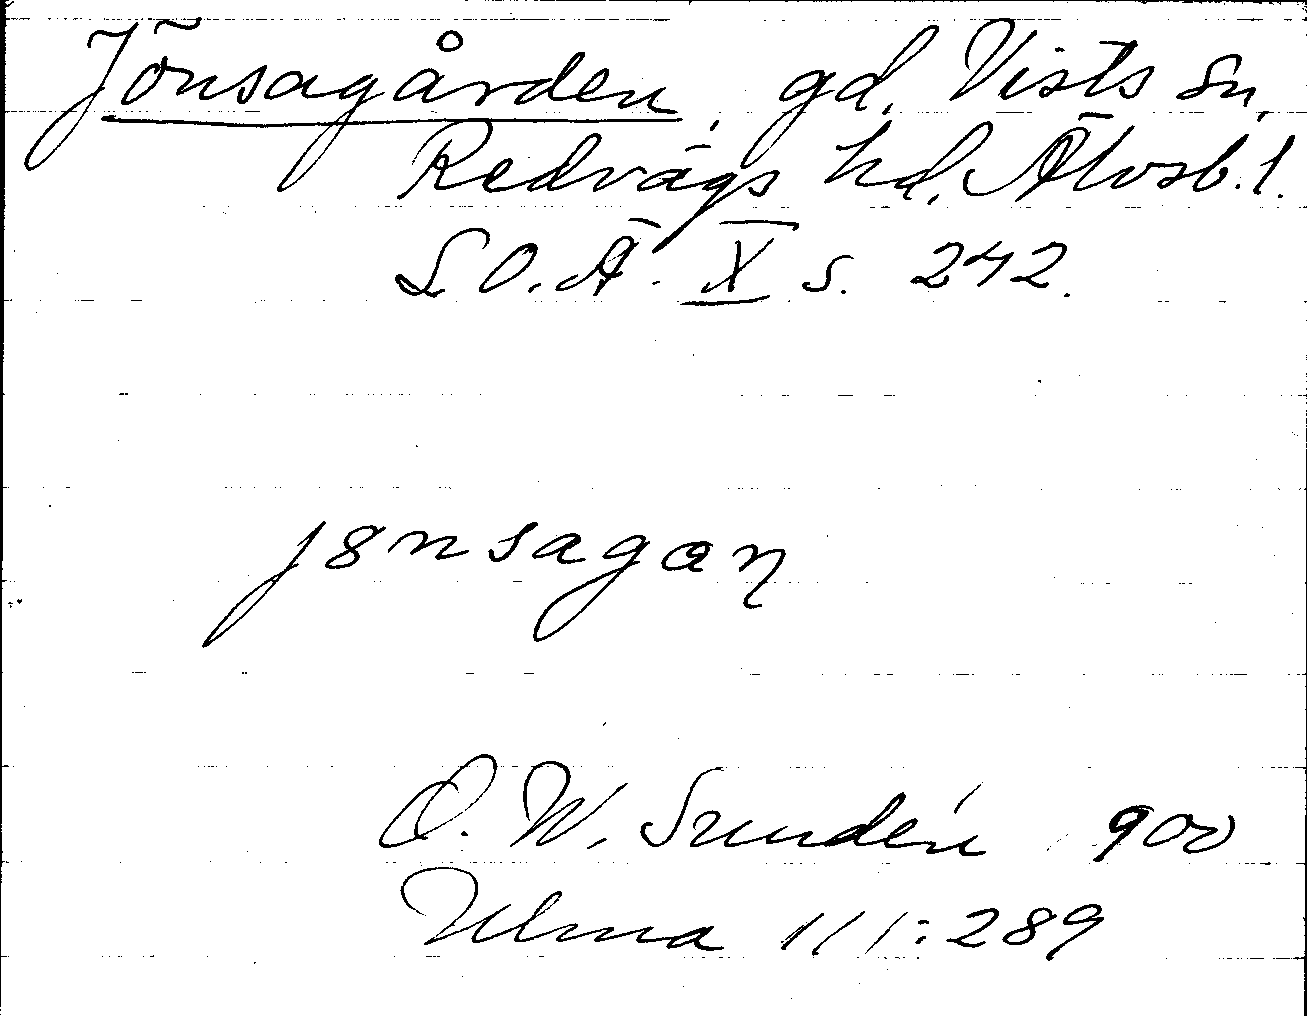 Jönsagården, gd, Vists sn,
Redvägs hd, Älvsb. l.
S. O. Ä. X s. 242.
j8nsagaɳ
O. W. Sundén 900
Ulma 111:289